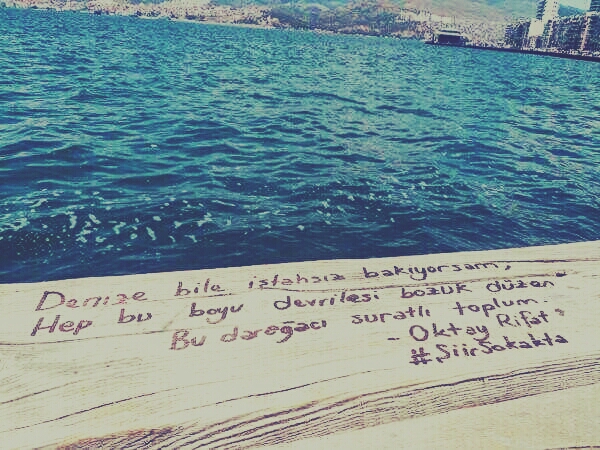 Denize bile iştahsız bakıyorsam,
Hep bu boyu devrilesi bozuk düzen"
Bu darağacı suratlı toplum.
- Oktay Rifat"
#ŞiirSokakta